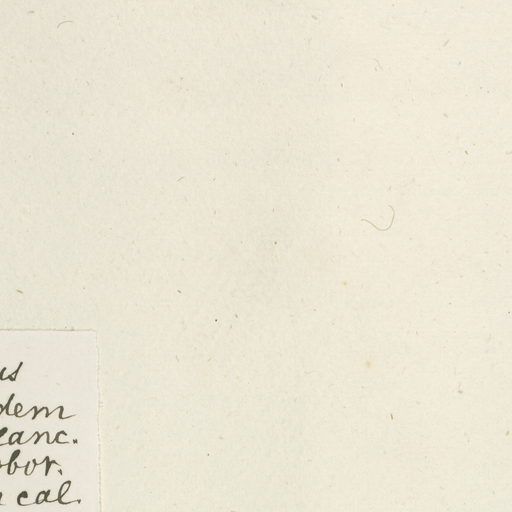 us
dem
lanc.
bor.
cal.